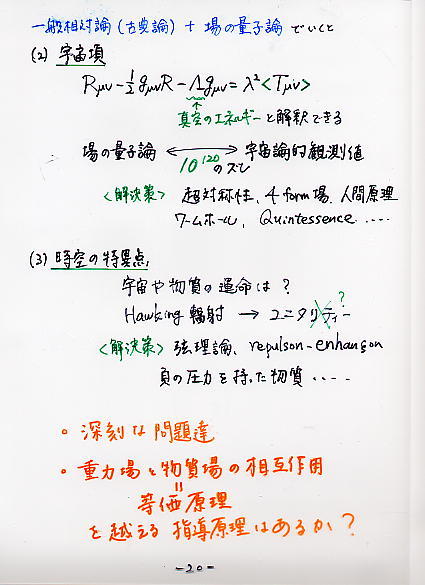 一般相対論(古典論) + 場の量子論 でいくと
(2) 宇宙項
Rμν − 1/2 gμν R − Λgμν = λ² <Tμν>
真空のエネルギーと解釈できる
場の量子論 ⟷ 宇宙論的観測値
10¹²⁰ のズレ
<解決策> 超対称性、4 form 場、人間原理
ワームホール、Quintessence.....
(3) 時空の特異点
宇宙や物質の運命は?
Hawking 輻射 → ユニタリティー ?
<解決策> 弦理論、repulson-enhançon
負の圧力を持った物質....
• 深刻な問題達
• 重力場と物質場の相互作用
=
等価原理
を越える指導原理はあるか?
-20-